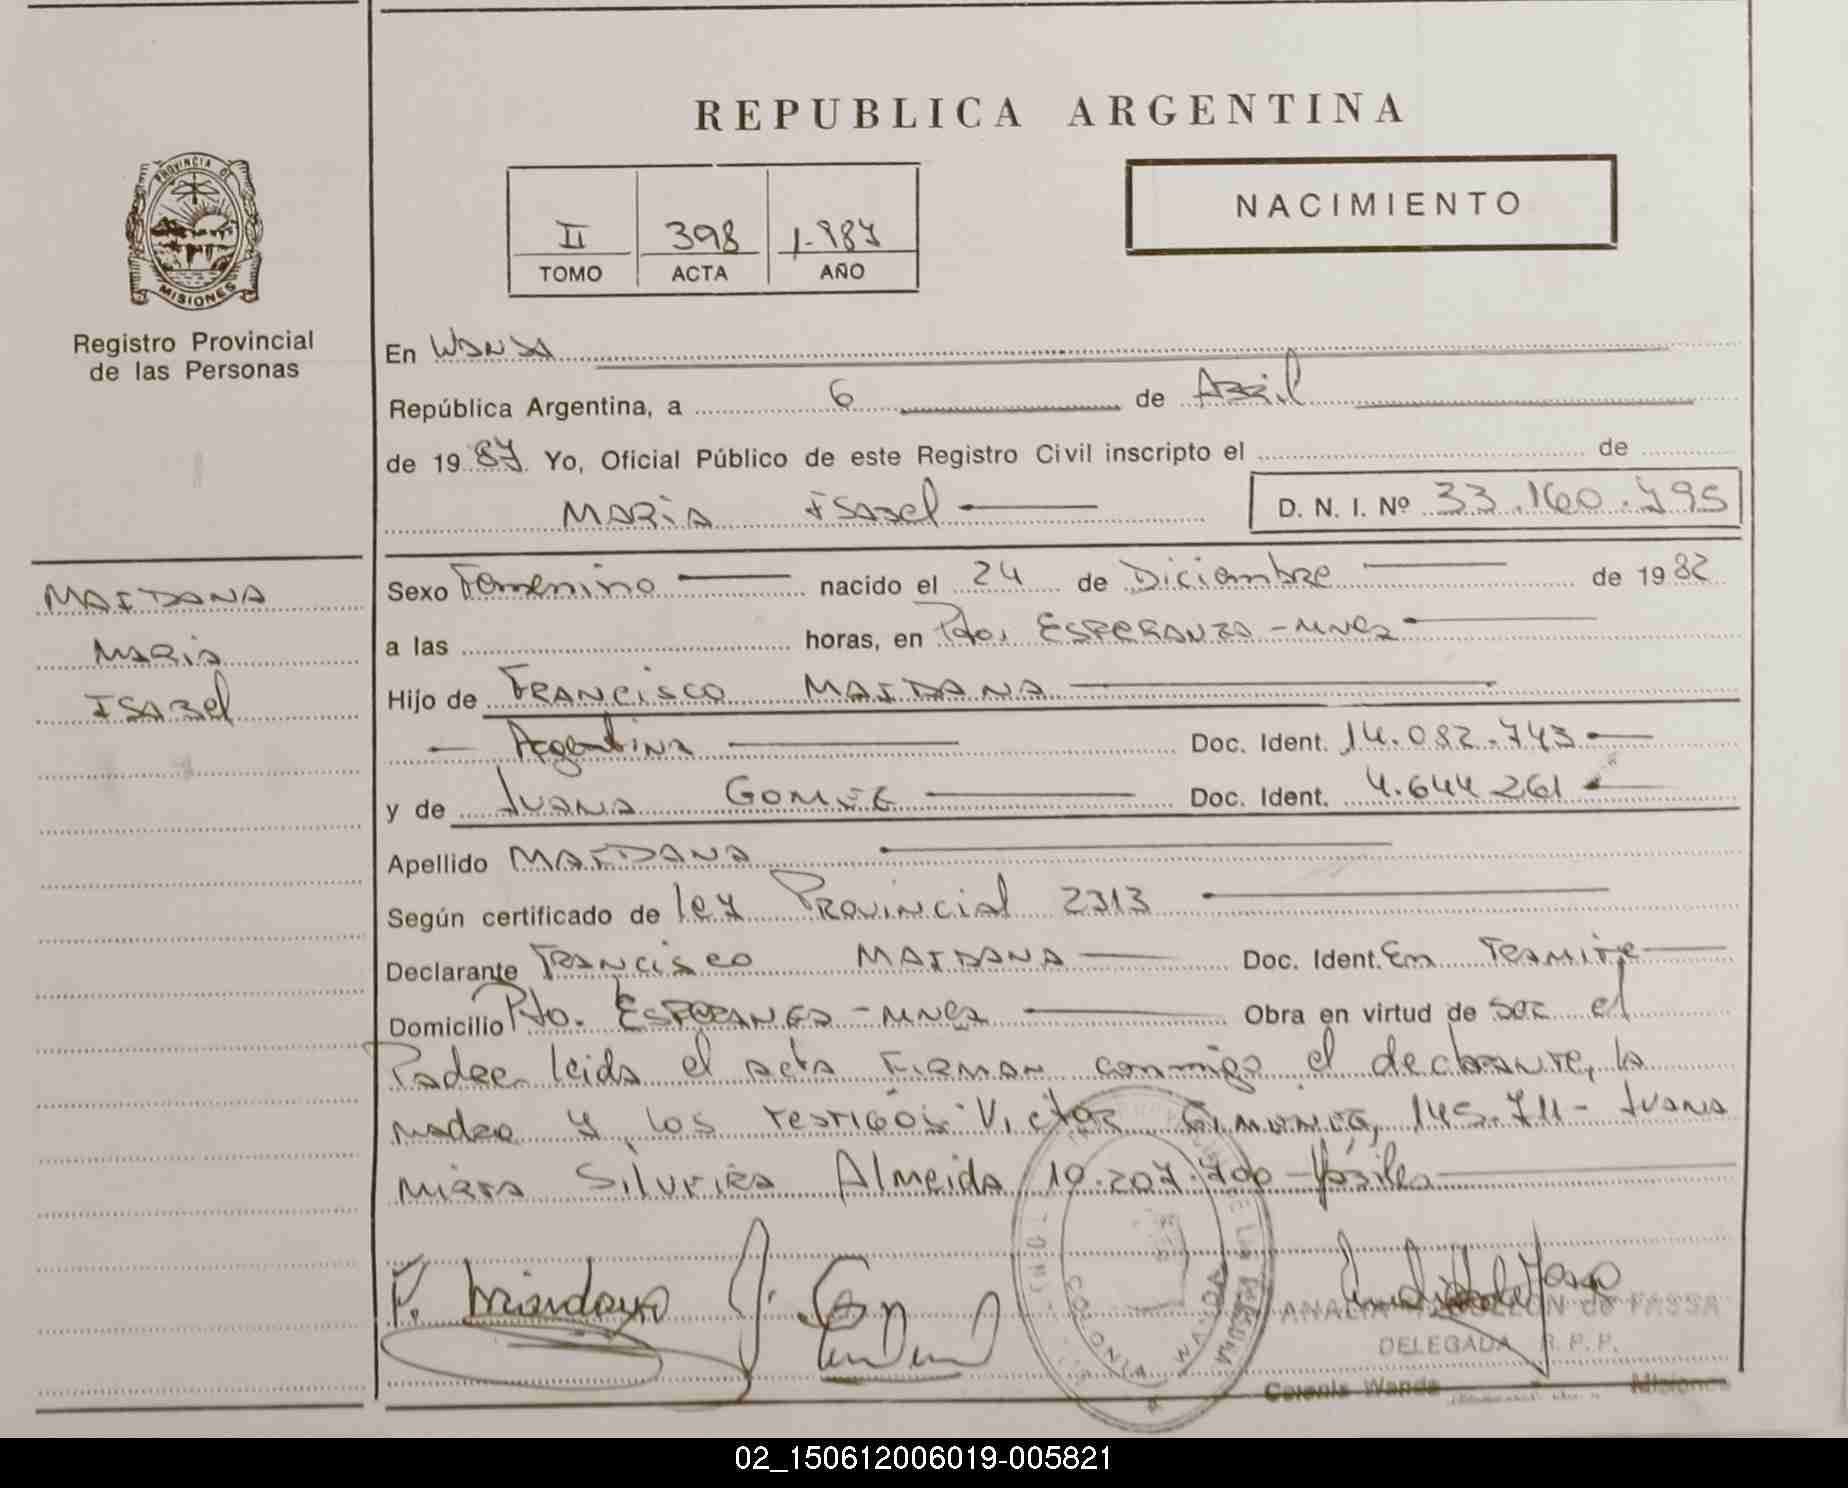 REPUBLICA ARGENTINA
PROVINCIA DE
MISIONES
Registro Provincial
de las Personas
II 398 1.987
TOMO ACTA AÑO
NACIMIENTO
En WANDA
República Argentina, a 6 de Abril
de 1987 Yo, Oficial Público de este Registro Civil inscripto el de
MARIA ISABEL D. N. I. Nº 33.160.795
MAIDANA
MARIA
ISABEL
Sexo Femenino nacido el 24 de Diciembre de 1982
a las horas, en Pto. ESPERANZA - MNES
Hijo de FRANCISCO MAIDANA
Argentina Doc. Ident. 14.082.743
y de JUANA GOMEZ Doc. Ident. 4.644.261
Apellido MAIDANA
Según certificado de ley Provincial 2313
Declarante FRANCISCO MAIDANA Doc. Ident. En Tramite
Domicilio Pto. ESPERANZA - MNES Obra en virtud de ser el
Padre leida el acta Firman conmigo el declarante, la
madre y los testigos: Victor Gimenez, 145.711 - Juana
Mirta Silveira Almeida 10.207.700 -
F. Maidana
COLONIA WANDA
DELEGADA R.P.P.
Colonia Wanda Misiones
02_150612006019-005821